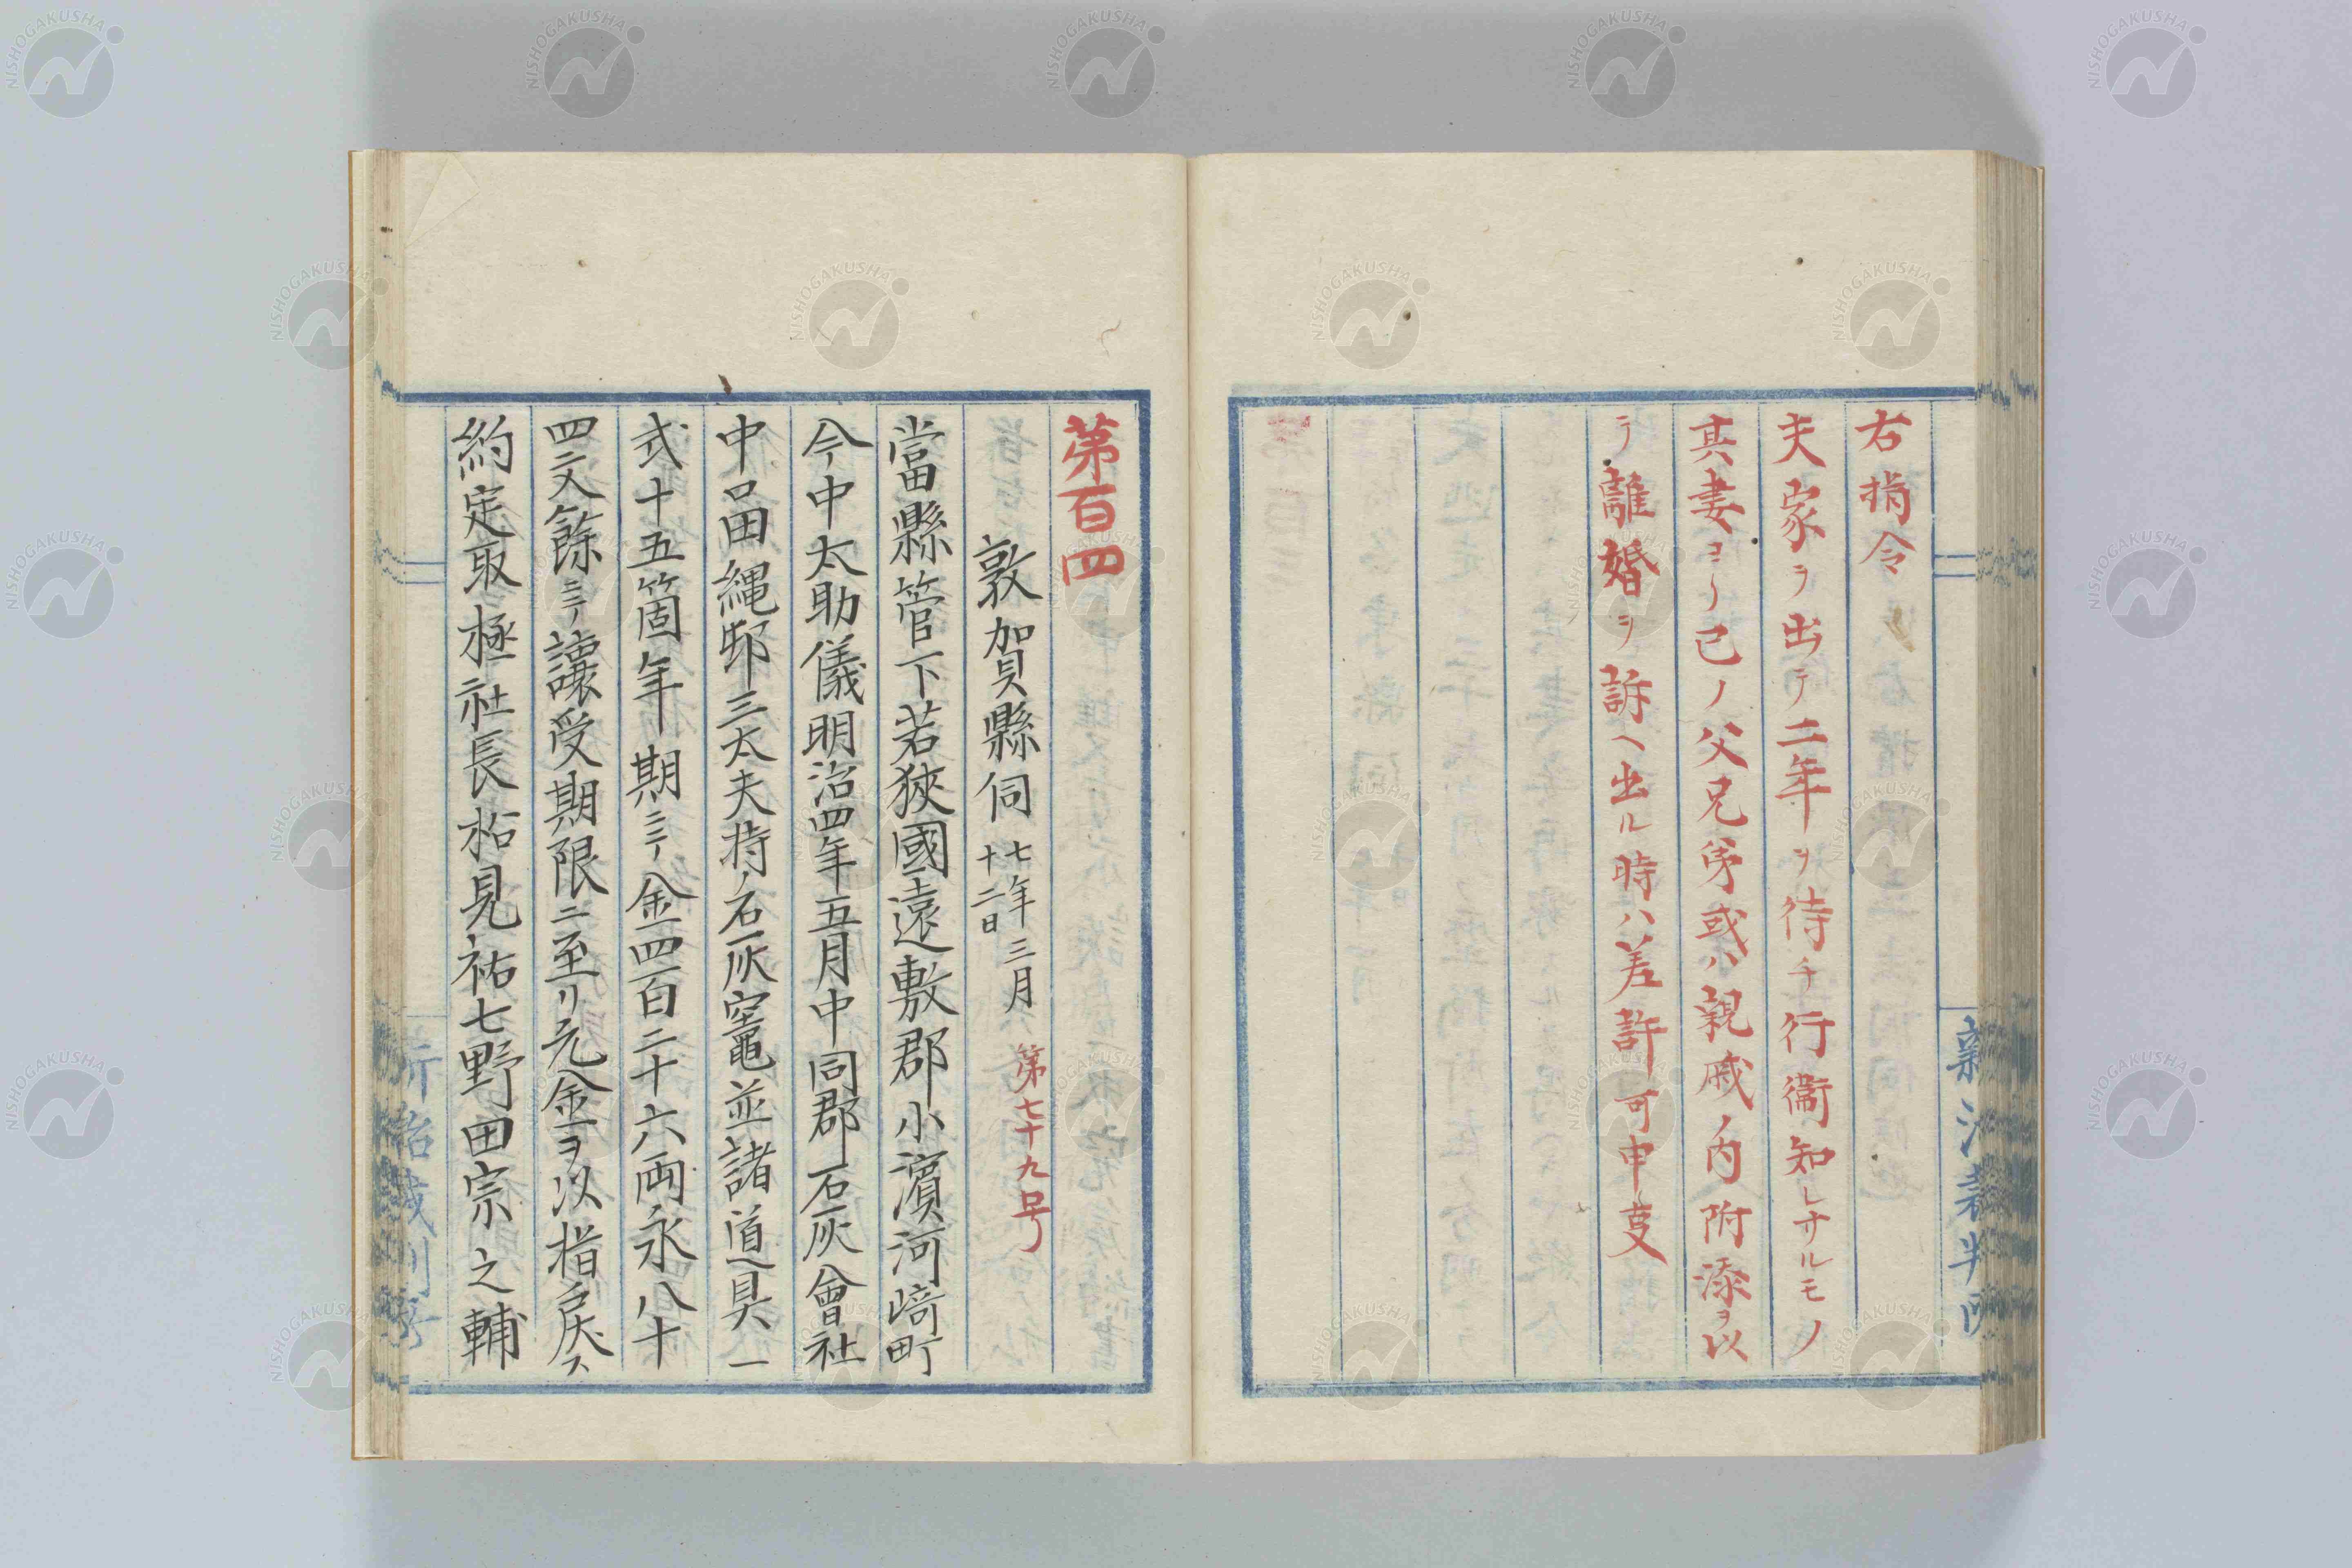 右指令
夫家ヲ出テ二年ヲ待チ行衞知レサルモノ
其妻ヨリ己ノ父兄弟或ハ親戚ノ内附添ヲ以
テ離婚ヲ訴ヘ出ル時ハ差許可申叓
第百四
敦賀縣伺 七年三月十二日 第七十九号
當縣管下若狹國遠敷郡小濱河﨑町
今中太助儀明治四年五月中同郡石灰會社
中品田縄邨三太夫持ノ石灰竈並諸道具一
式十五箇年期ニテ金四百二十六両永八十
四文餘ニテ讓受期限ニ至リ元金ヲ以揩戻ス
約定取極社長柘見祐七野田宗之輔
NISHOGAKUSHA